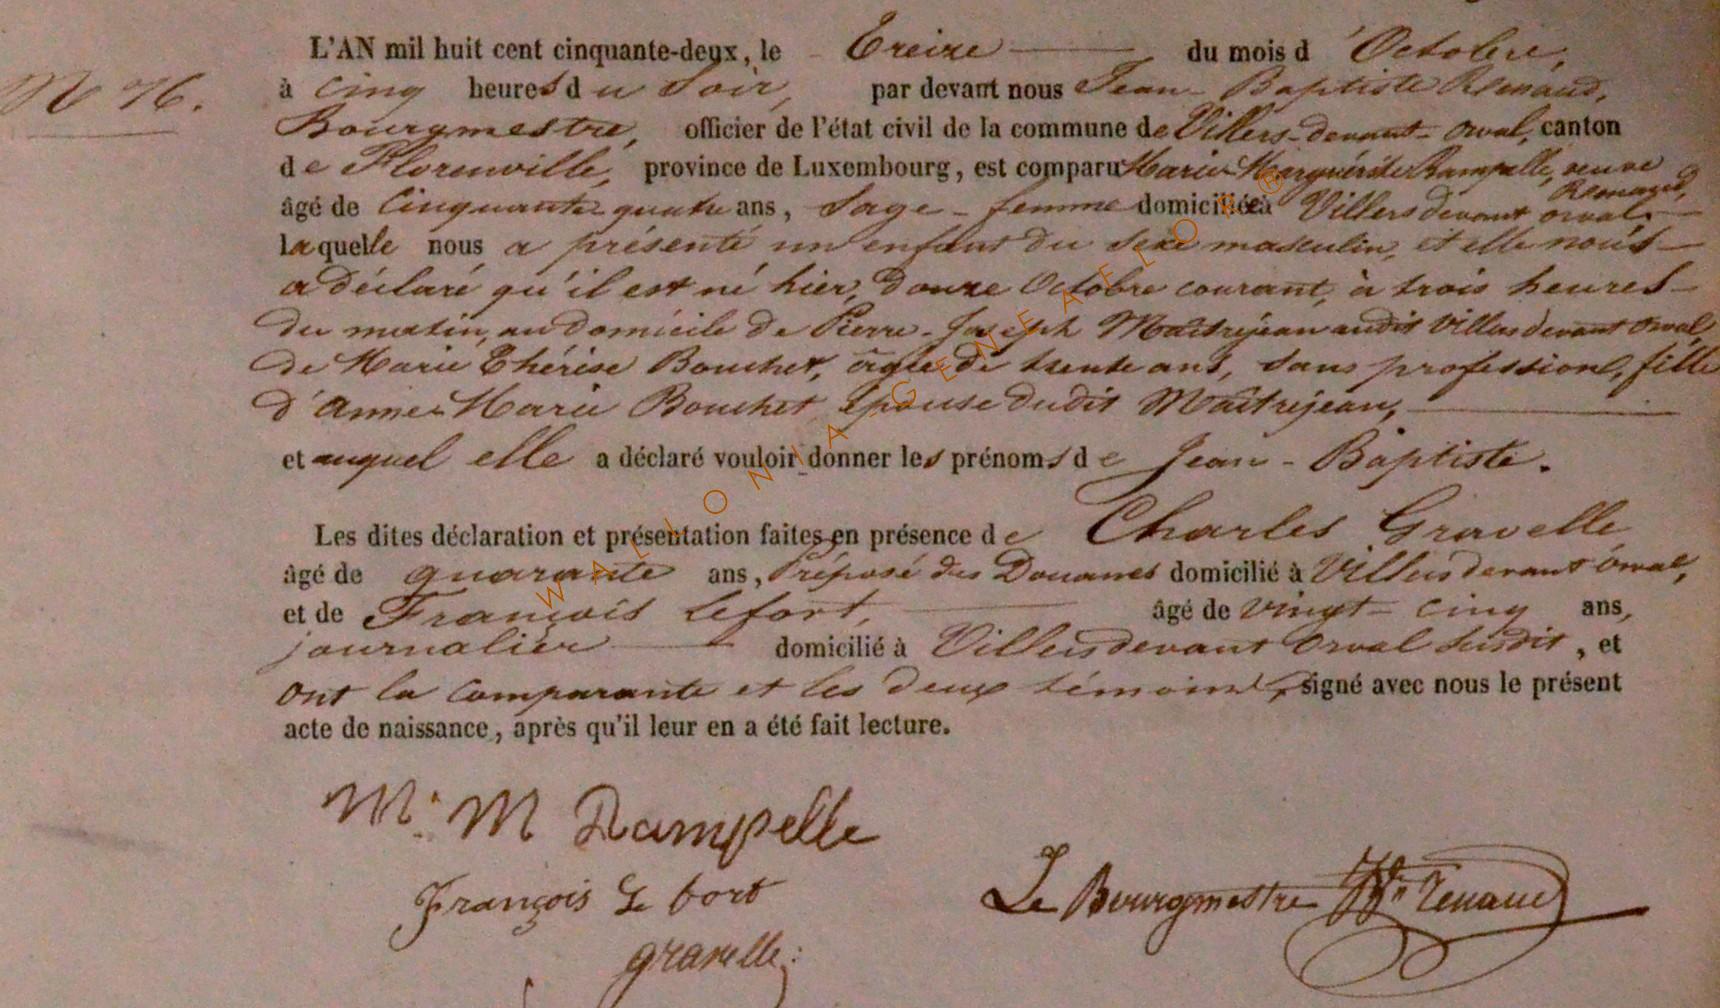 L'AN mil huit cent cinquante-deux, le Treize du mois d'Octobre,
N° 76. à cinq heures du Soir, par devant nous Jean-Baptiste Renaud,
Bourgmestre, officier de l'état civil de la commune de Villers-devant-orval, canton
de Florenville, province de Luxembourg, est comparu Marie-Marguérite Rampelle, veuve
âgé de Cinquante-quatre ans, Sage-femme domiciliée à Villers devant orval,
laquelle nous a présenté un enfant du sexe masculin, et elle nous
a déclaré qu'il est né hier, douze Octobre courant, à trois heures
du matin, au domicile de Pierre-Joseph Maîtrejean audit Villers devant Orval,
de Marie Thérèse Bouchet, âgée de trente ans, sans profession, fille
d'Anne-Marie Bouchet épouse dudit Maîtrejean,
et auquel elle a déclaré vouloir donner les prénoms de Jean-Baptiste.
Les dites déclaration et présentation faites en présence de Charles Gravelle
âgé de quarante ans, Préposé des Douanes domicilié à Villers devant Orval,
et de François Lefort, âgé de vingt-cinq ans,
journalier domicilié à Villers devant Orval susdit, et
ont la Comparante et les deux témoins, signé avec nous le présent
acte de naissance, après qu'il leur en a été fait lecture.
M. M Rampelle
François Le fort
Le Bourgmestre JBte Renaud
gravelle
WALLONIA-GENEALOR®